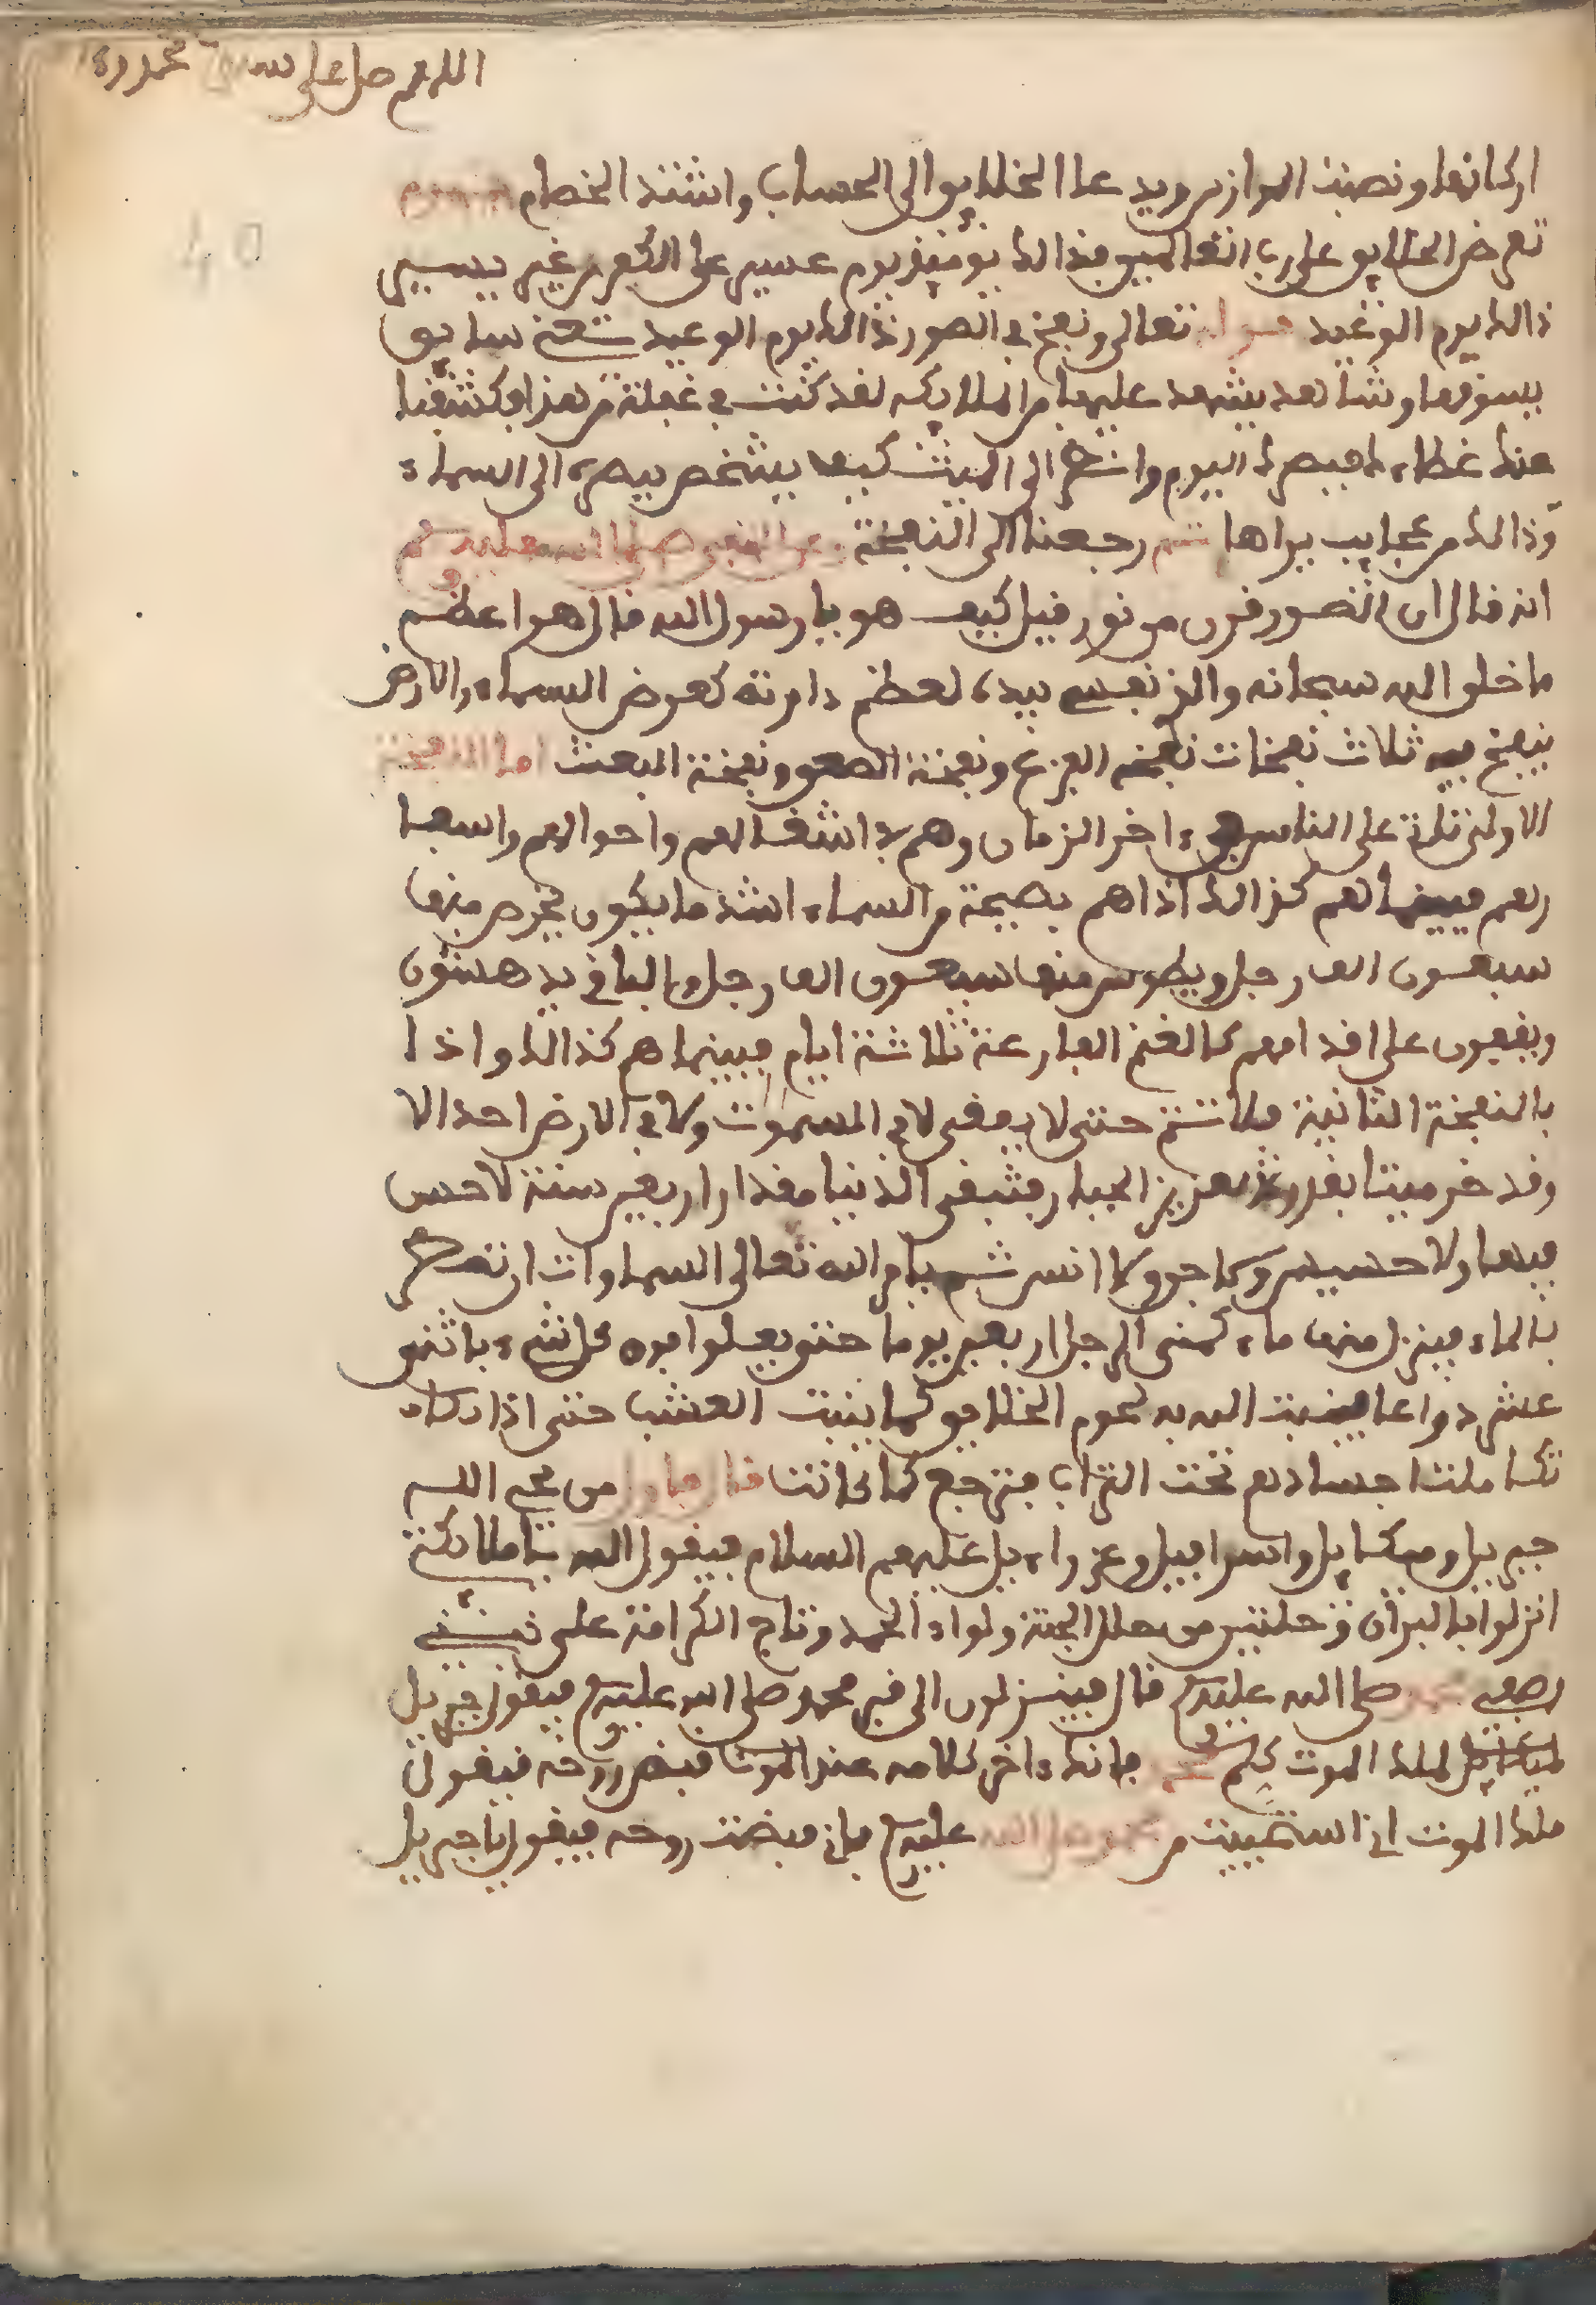 اللهم صل على محمد
اركانها ونصبت الموازين على الخلايق الى الحساب واشتد الخصام
تعرض الخلايق على رب العالمين فذالك يومئذ يوم عسير على الكفرين غير يسير
ذالك يوم الوعيد تعالى ونفخ في الصور ذالك يوم الوعيد سايق
يسوقها وشاهد يشهد عليها من الملايكة لقد كنت في غفلة من هذا فكشفنا
عنك غطاءك فبصرك اليوم وانظر الى الميت كيف يشخص ببصره الى السماء
وذالك من عجايب يراها ثم رجعنا الى النفخة وعن النبي صلى الله عليه وسلم
انه قال ان الصور قرن من نور قيل كيف هو يا رسول الله قال هو اعظم
ما خلق الله سبحانه والذي نفسي بيده لعظم دايرته كعرض السماء والارض
ينفخ فيه ثلاث نفخات نفخة الفزع ونفخة الصعق ونفخة البعث اما النفخة
الاولى على الناس في ءاخر الزمان وهم في اشغالهم واحوالهم واسعا
رهم فبينما هم كذالك اذاهم بصيحة من السماء اشد ما يكون منها
سبعون الف رجل منها سبعون الف رجل والباقي يدهشون
ويقفون على اقدامهم كالغنم الفارعة ثلاثة ايام فبينما هم كذالك واذا
بالنفخة الثانية حتى لا يبقى لا في السموت ولا في الارض احد الا
وقد خر ميتا بقدرة العزيز الجبار فتبقى الدنيا مقدار اربعين سنة لا حس
فيها ولا حسيس ولا جن ولا انس ثم يامر الله تعالى السماوات ان تمطر
بالماء فينزل منها ماء كمنى الرجل اربعين يوما حتى يعلوا فوق كل شيء باثني
عشر ذراعا فينبت الله به لحوم الخلايق كما ينبت العشب حتى اذا
تكاملت اجسادهم تحت التراب فترجع كما كانت فاول من يحيي الله
جبريل وميكايل واسرافيل وعزراءيل عليهم السلام فيقول الله يا ملايكتي
انزلوا بالبراق وحلتين من حلل الجنة ولواء الحمد وتاج الكرامة على
محمد صلى الله عليه وسلم قال فينزلون الى قبر محمد صلى الله عليه وسلم فيقول جبريل
لملك الموت كلم محمد فانك ءاخر كلامه عند الموت قبض روحه فيقول
ملك الموت اني استحييت من محمد صلى الله عليه وسلم فاني قبضت روحه فيقول يا جبريل